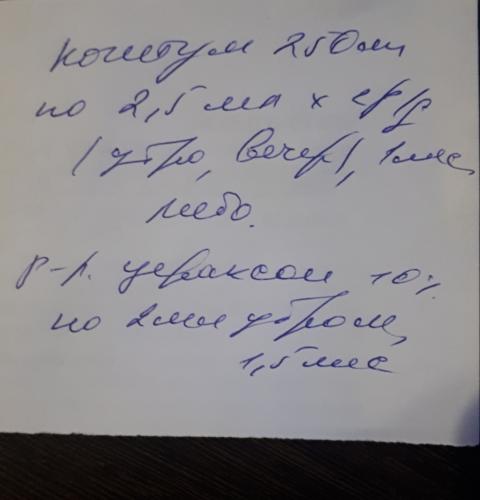 когитум 250мл
по 2,5 мл х 2р/д
(утро, вечер), 1 мес
либо.
р-р. цераксон 10%
по 2мл утром,
1,5 мес